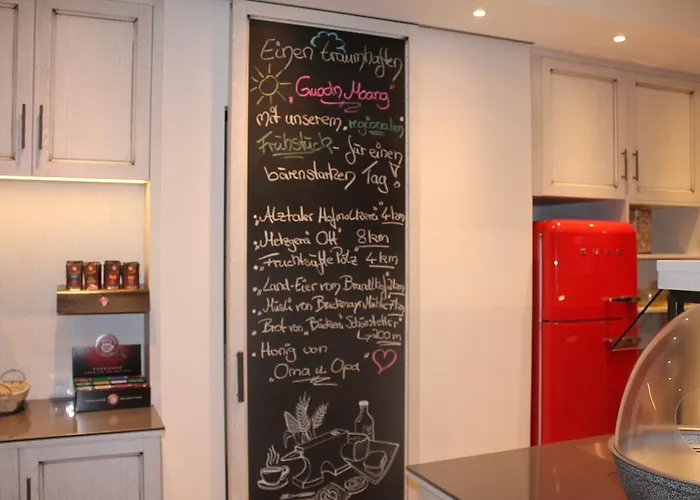 Einen traumhaften
"Guadn Moang"
mit unserem "regionalen"
Frühstück - für einen
bärenstarken Tag!
• "Alztaler Hofmolkerei" 4 km
• "Metzgerei Ott" 8 km
• "Fruchtsäfte Pölz" 4 km
• "Land-Eier vom Brandlhof"
• "Müsli von Bruckmayr Mühle"
• Brot von "Bäckerei Schönstetter"
200 m
• Honig von
"Oma u. Opa"
SMEG
TEEKANNE